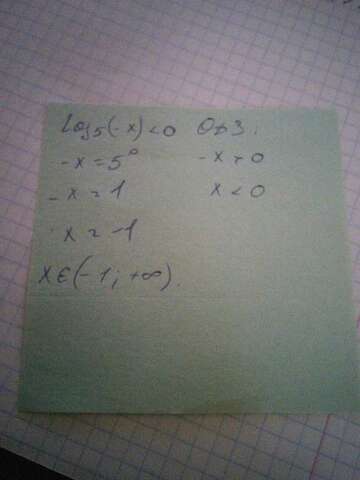 Log₅(-x) < 0 ОДЗ:
-x = 5⁰ -x > 0
-x = 1 x < 0
x = -1
x ∈ (-1; +∞).